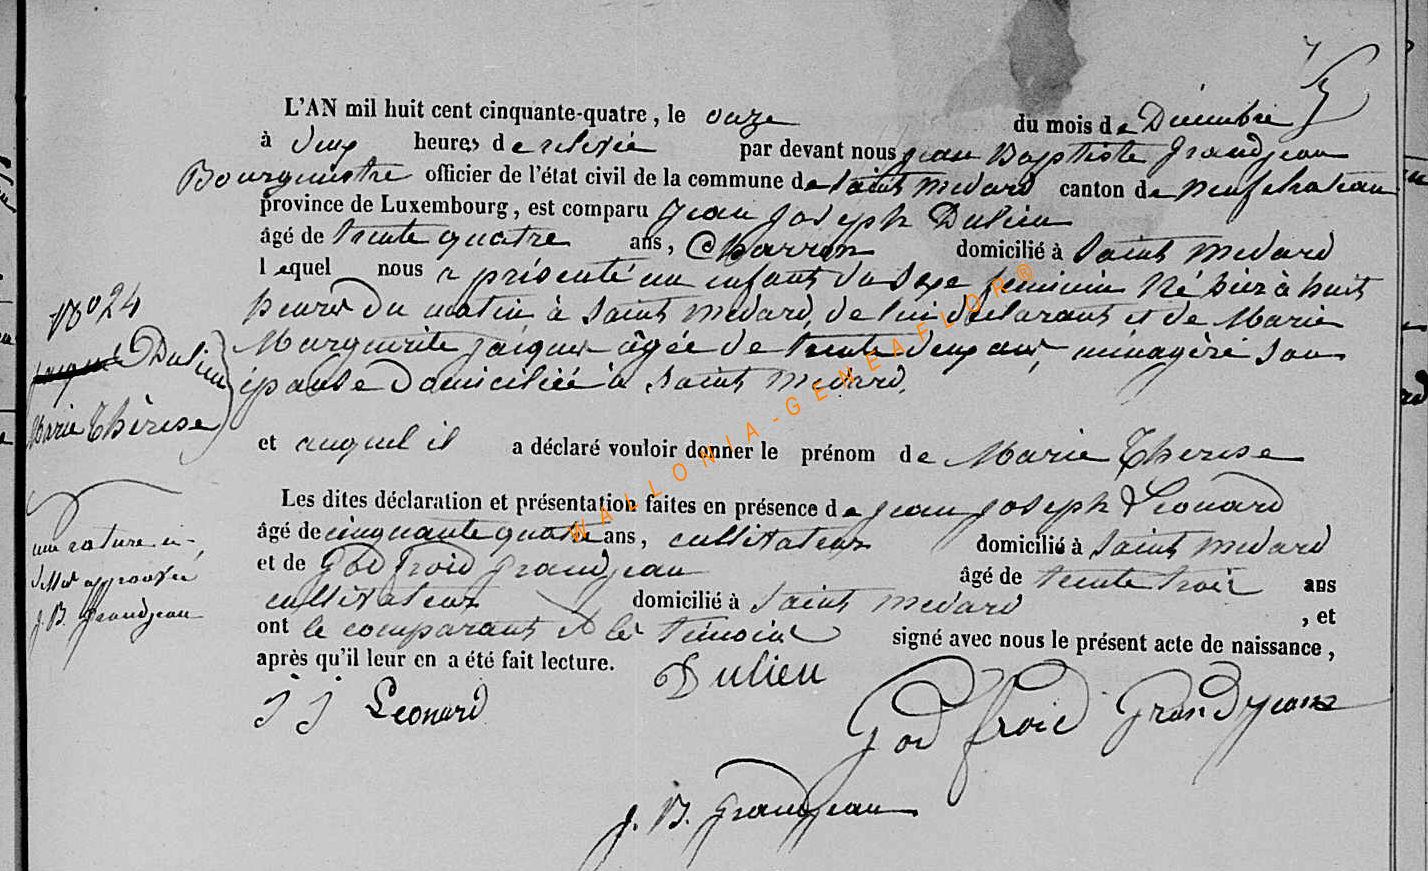 L'AN mil huit cent cinquante-quatre, le onze du mois de Décembre
à deux heures de relevée par devant nous Jean Baptiste Grandjean
Bourgmestre officier de l'état civil de la commune de Saint Medard canton de Neufchateau
province de Luxembourg, est comparu Jean Joseph Dulieu
âgé de trente quatre ans, Charron domicilié à Saint Medard
lequel nous a présenté un enfant du sexe féminin Né hier à huit
heures du matin à Saint Medard, de lui déclarant et de Marie
Marguerite Jaiques âgée de trente deux ans, ménagère son
épouse domiciliée à Saint Medard.
et auquel il a déclaré vouloir donner le prénom de Marie Therese
Les dites déclaration et présentation faites en présence de Jean Joseph Léonard
âgé de cinquante quatre ans, cultivateur domicilié à Saint Medard
et de Godfroid Grandjean âgé de trente trois ans
cultivateur domicilié à Saint Medard, et
ont le comparant et les témoins signé avec nous le présent acte de naissance,
après qu'il leur en a été fait lecture.
Dulieu
J J Leonard
Godfroid Grandjean
J. B. Grandjean
N° 24
Dulieu
Marie Thérèse
une rature ci-
dessus approuvée
J. B. Grandjean
WALLONIA-GENEAFLOR®